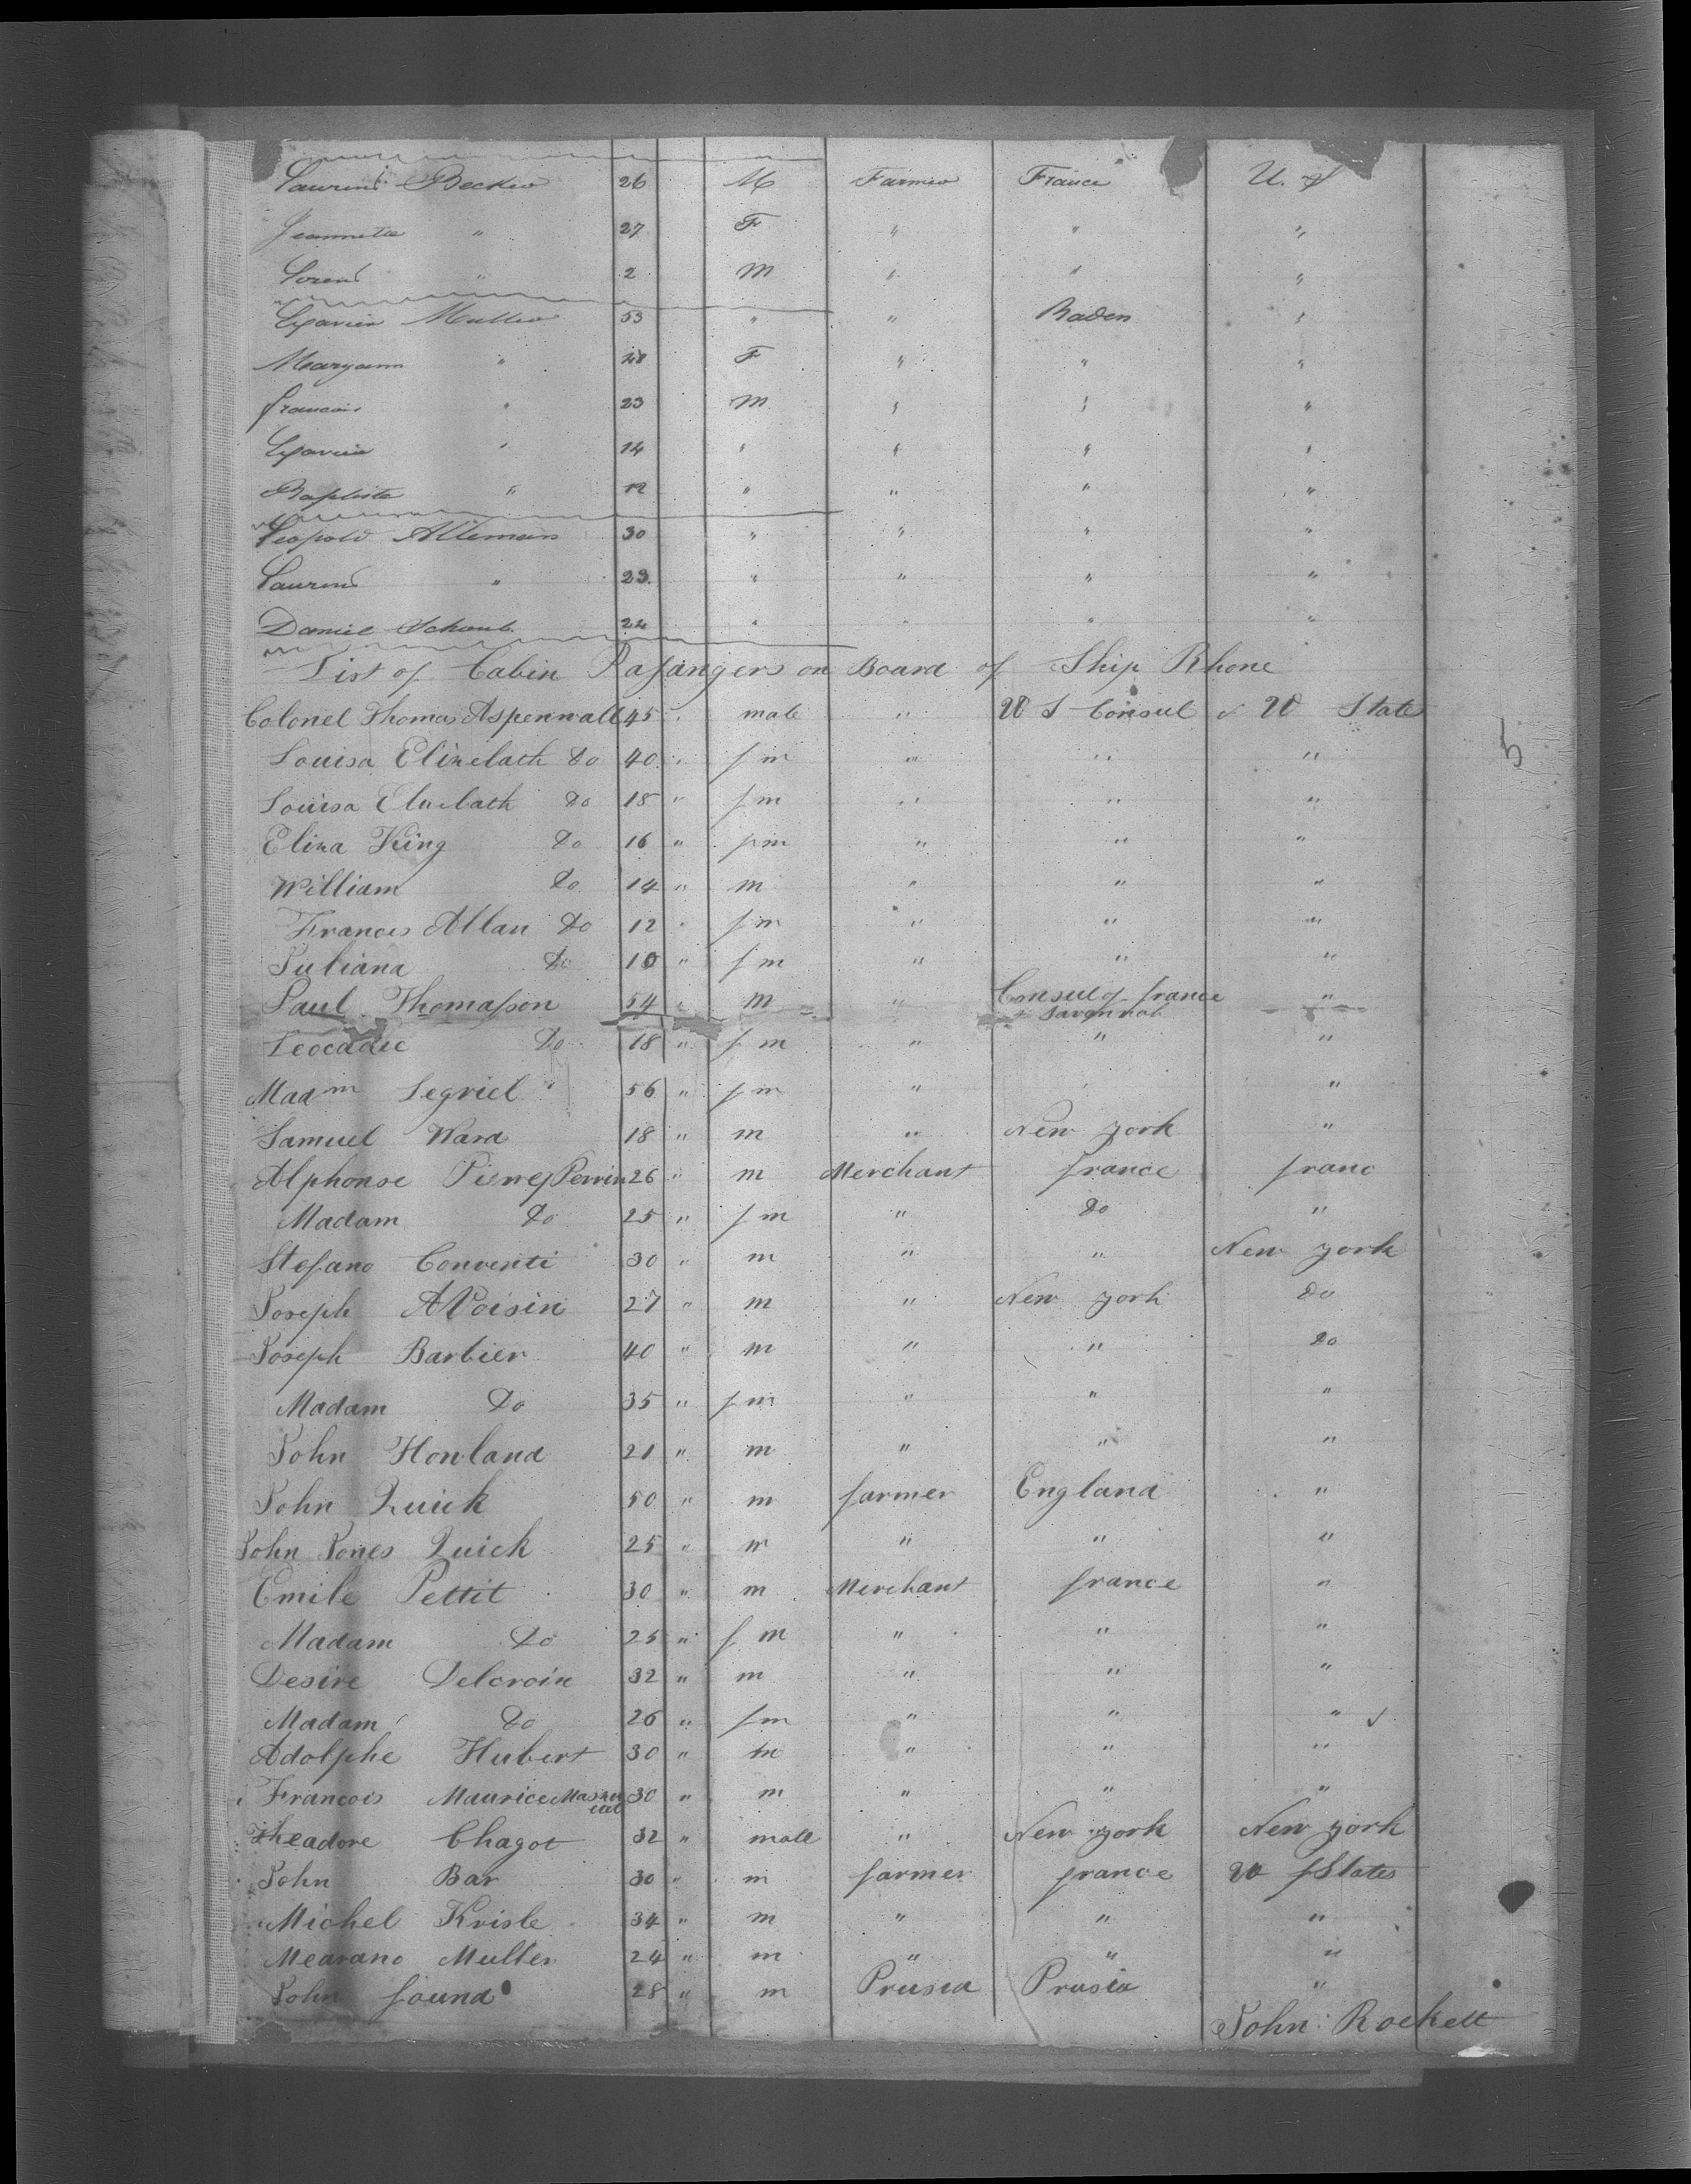 Laurent Becker 26 M Farmer France U. S
Jeannette " 27 F " " "
Lorent " 2 M " " "
Xavier Muller 53 " " Baden "
Maryann " 48 F " " "
francois " 23 M " " "
Xavier " 14 " " " "
Baptiste " 12 " " " "
Leopold Alleman 30 " " " "
Laurent " 29 " " " "
Daniel Schaub 24 " " " "
List of Cabin Pasangers on Board of Ship Rhone
Colonel Thomas Aspennall 45 " male " U S Consul U States
Louisa Elizelath Do 40 " fm " " "
Louisa Elizelath Do 18 " fm " " "
Eliza King Do 16 " fm " " "
William Do 14 " m " " "
Frances Allan Do 12 " fm " " "
Juliana Do 10 " fm " " "
Paul Thomasson 54 " m " Consul of france "
Savannah
Leocadie Do 18 " fm " " "
Madm Segriel 56 " fm " "
Samuel Ward 18 " m " New york "
Alphonse Pierre Perrin 26 " m Merchant france franc
Madam Do 25 " fm " Do "
Stefano Conventi 30 " m " " New york
Joseph A Voisin 27 " m " New york Do
Joseph Barbier 40 " m " " Do
Madam Do 35 " fm " " "
John Howland 21 " m " " "
John Quick 50 " m farmer England "
John Jones Quick 25 " m " " "
Emile Pettit 30 " m Merchant france "
Madam Do 25 " fm " " "
Desire Delcroix 32 " m " " "
Madam Do 26 " fm " " "
Adolphe Hubert 30 " m " " "
Francois Maurice 30 " m " " "
Theadore Chagot 32 " male " New york New york
John Bar 30 " m farmer france U States
Michel Krisle 34 " m " " "
Mearano Muller 24 " m " " "
John found 28 " m Prusia Prusia "
John Rockett
5